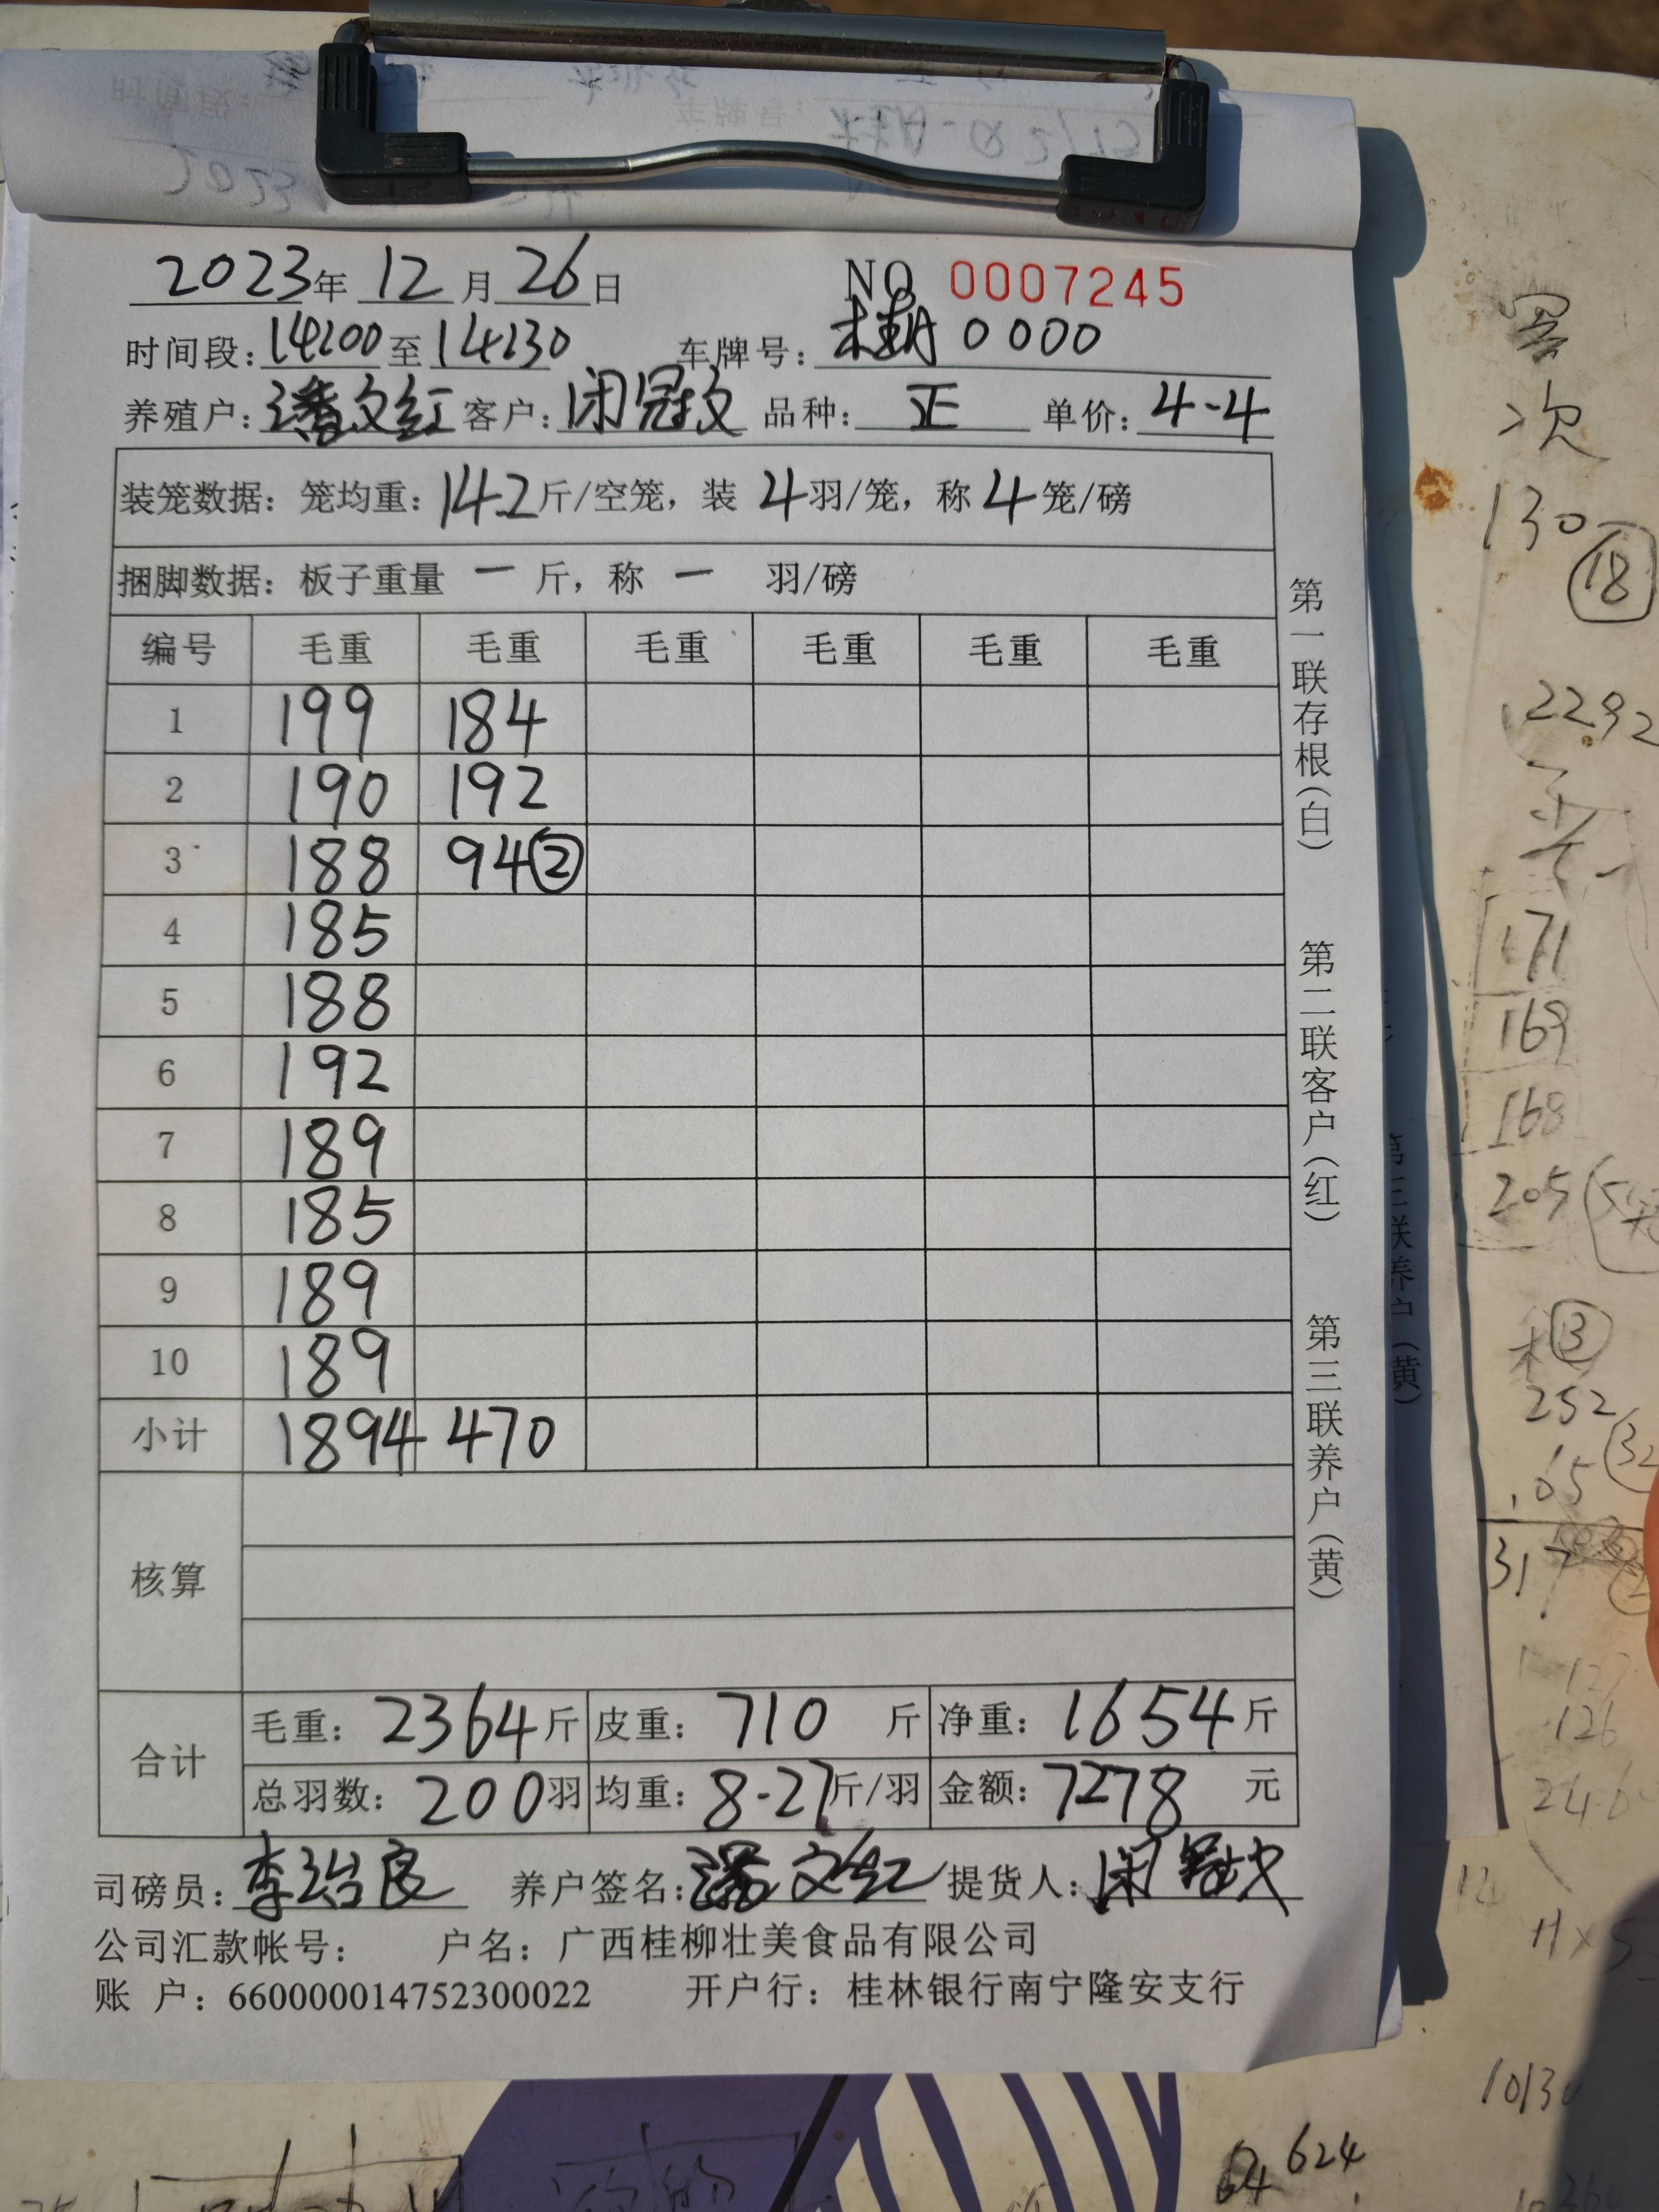 2023年 12月26日 NO 0007245
时间段:14:00至14:30 车牌号: 桂A 0000
养殖户:潘文红 客户: 品种: 正 单价: 4.4
装笼数据: 笼均重: 14.2斤/空笼, 装 4羽/笼, 称4笼/磅
捆脚数据: 板子重量 一 斤, 称 一 羽/磅
编号 毛重 毛重 毛重 毛重 毛重 毛重
1 199 184
2 190 192
3 188 94②
4 185
5 188
6 192
7 189
8 185
9 189
10 189
小计 1894 470
核算
合计 毛重: 2364斤 皮重: 710 斤 净重: 1654斤
总羽数: 200羽 均重: 8.27斤/羽 金额: 7278 元
司磅员: 李治良 养户签名:潘文红 提货人:
公司汇款帐号: 户名: 广西桂柳壮美食品有限公司
账 户: 660000014752300022 开户行: 桂林银行南宁隆安支行
第一联存根(白) 第二联客户(红) 第三联养户(黄)
第三联养户(黄)
次
130
18
2292
171
169
168
205
③
252
65
317
126
624